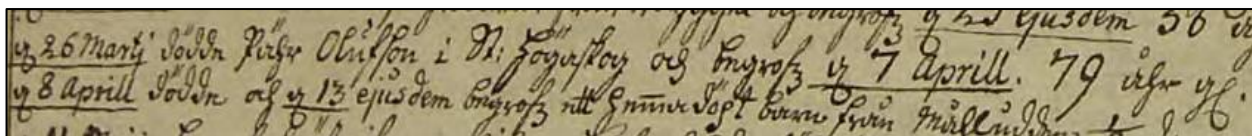 och begrofz d 23 ejusdem 58
d 26 Martj dödde Pähr Olufson i St: Högaskog och begrofz d 7 Aprill. 79 åhr gl.
d 8 Aprill dödde och d 13 ejusdem begrofz ett hemmadöpt barn från